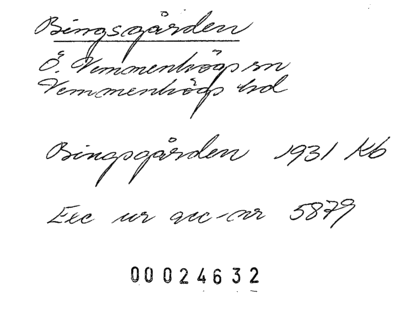 Bingsgården
Ö. Vemmenhögs sn
Vemmenhögs hd
Bingsgården 1931 Kb
Exc ur acc-nr 5879
00024632